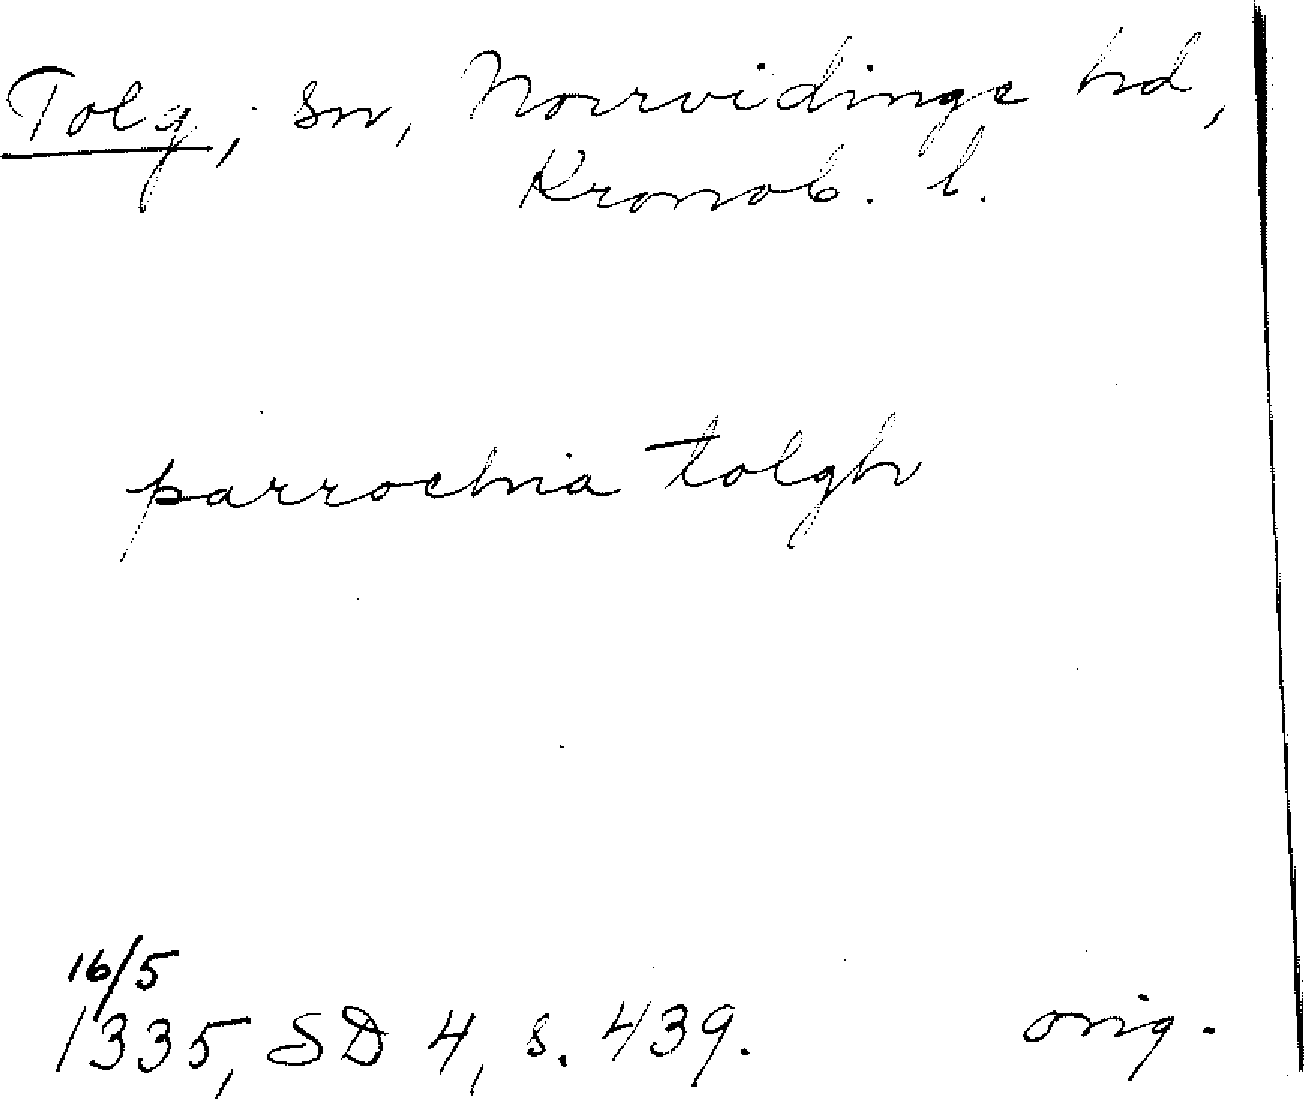 Tolg, sn, Norrvidinge hd,
Kronob. l.
parrochia tolgh
16/5
1335, SD 4, s. 439. orig.